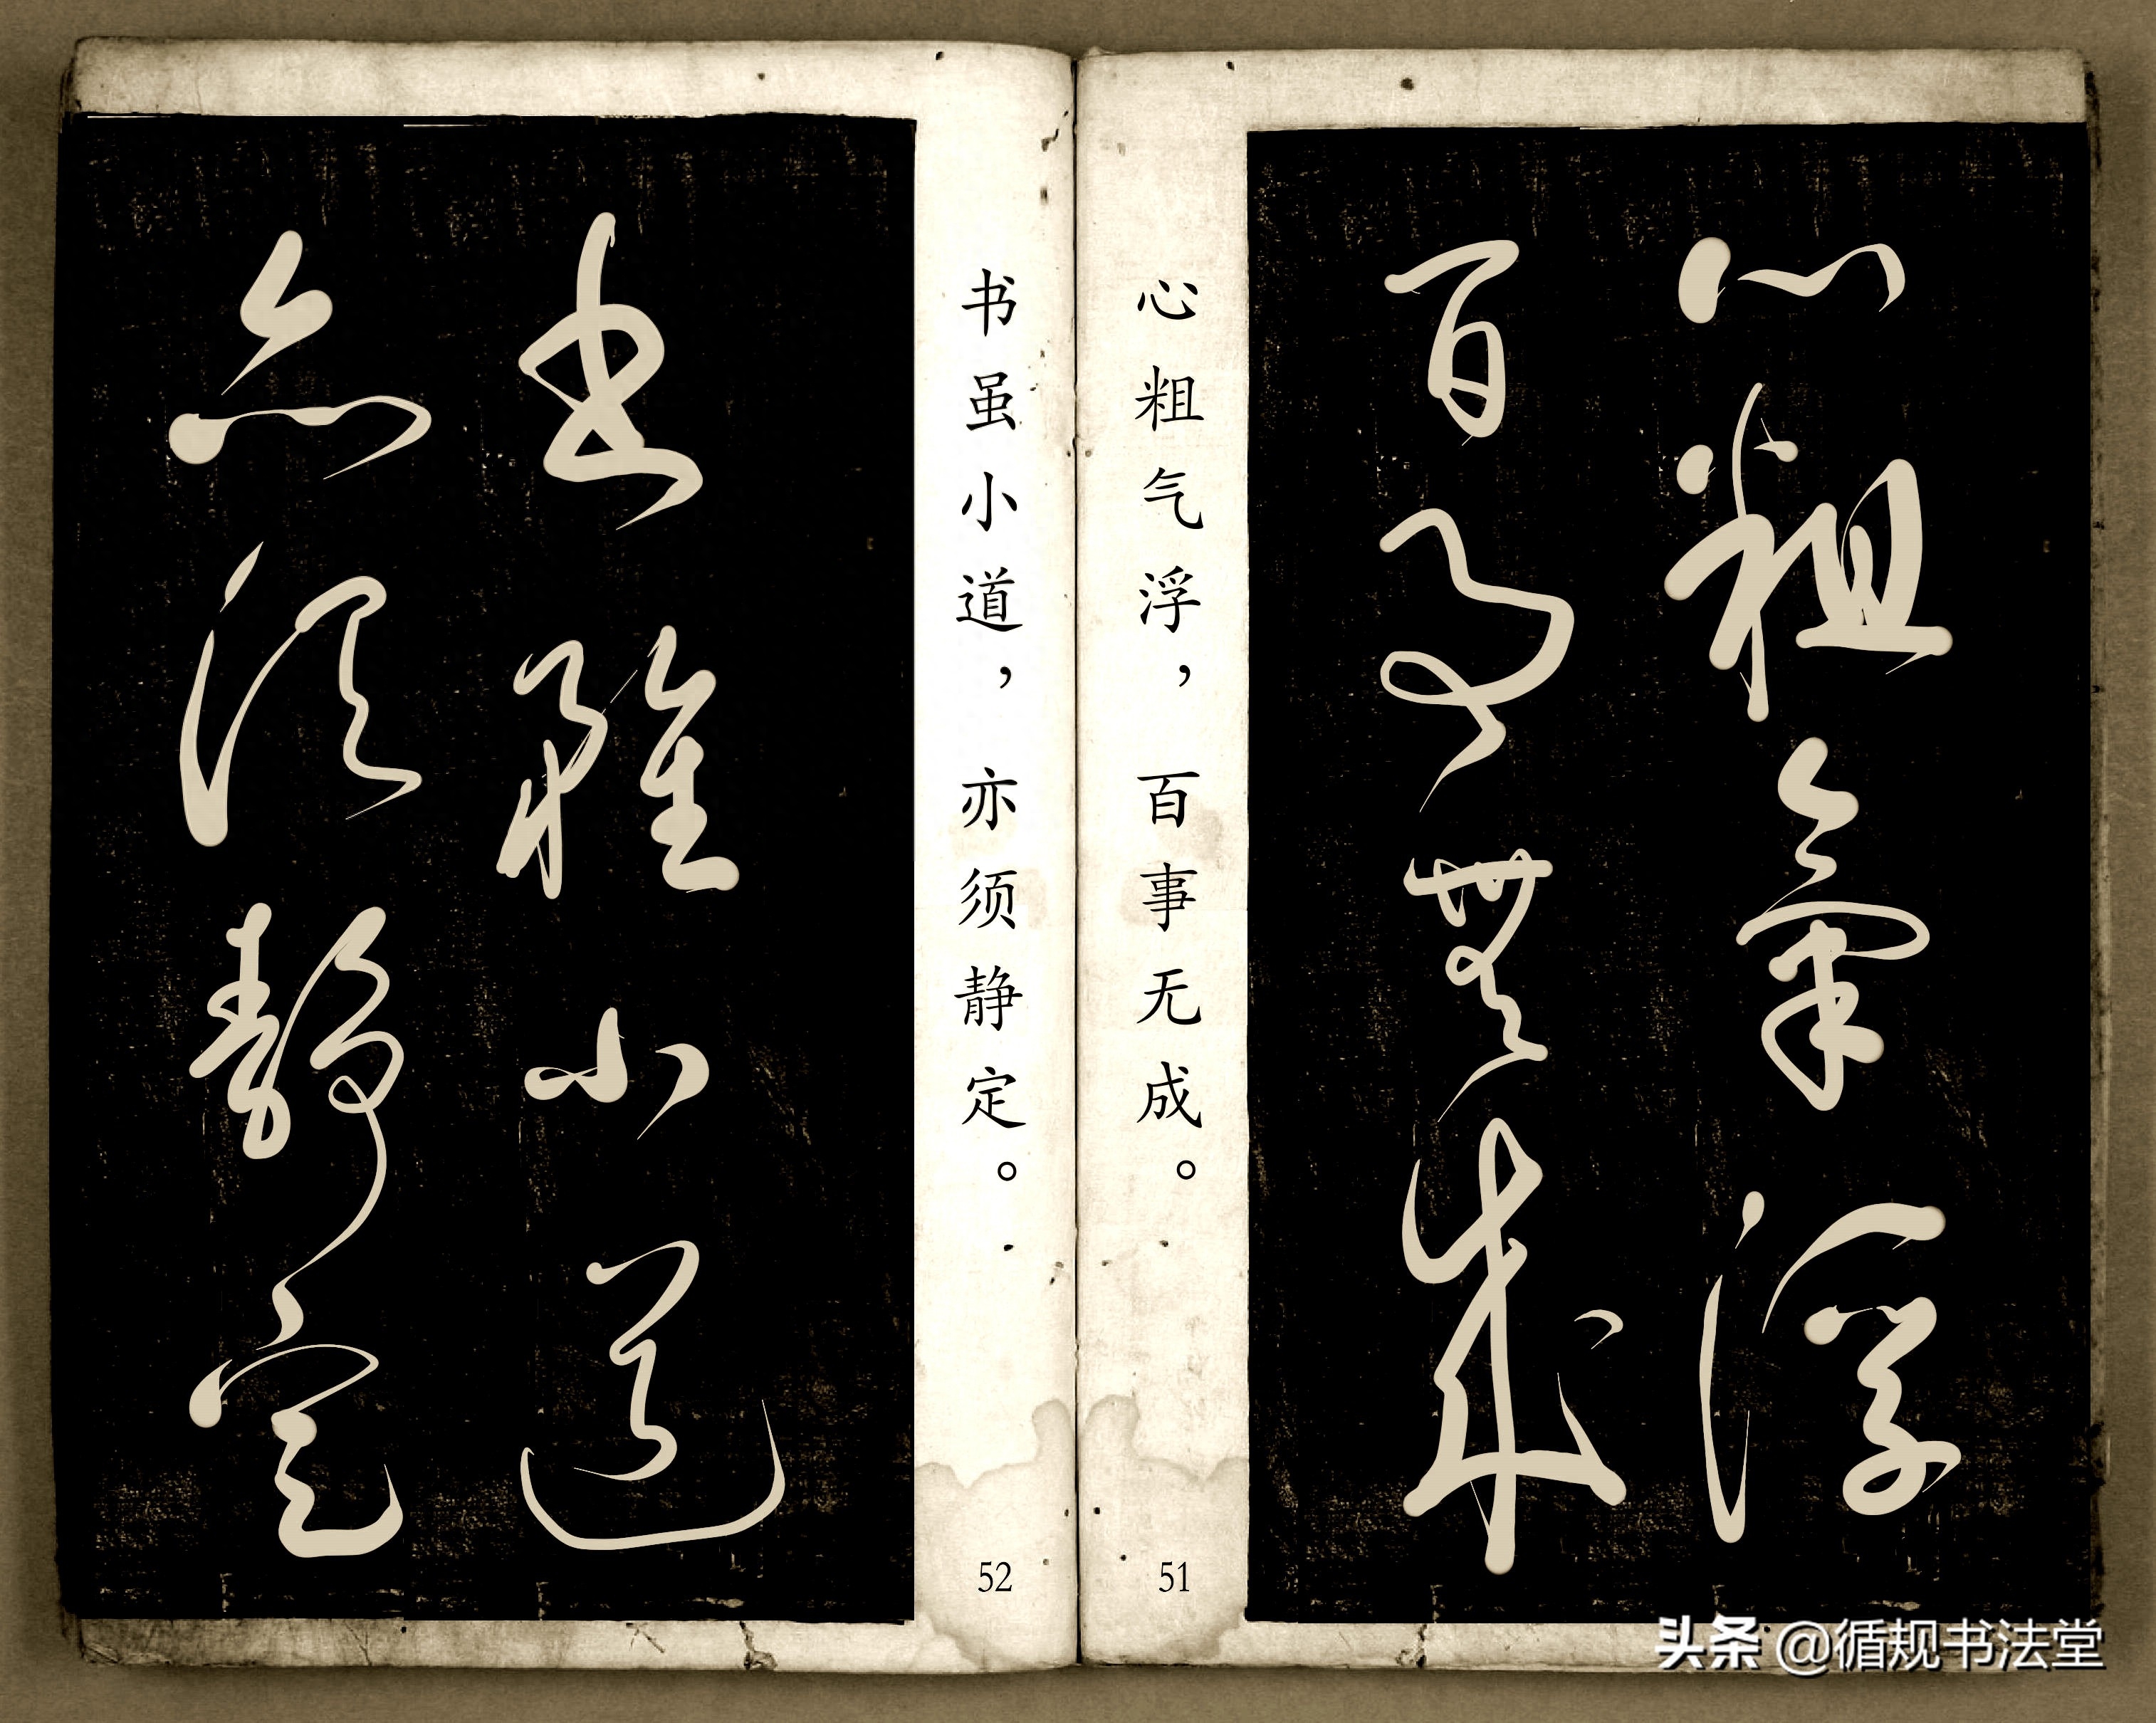 心粗氣浮
百事無成
心粗气浮，百事无成。
51
書雖小道
亦須靜定
书虽小道，亦须静定。
52
头条 @循规书法堂